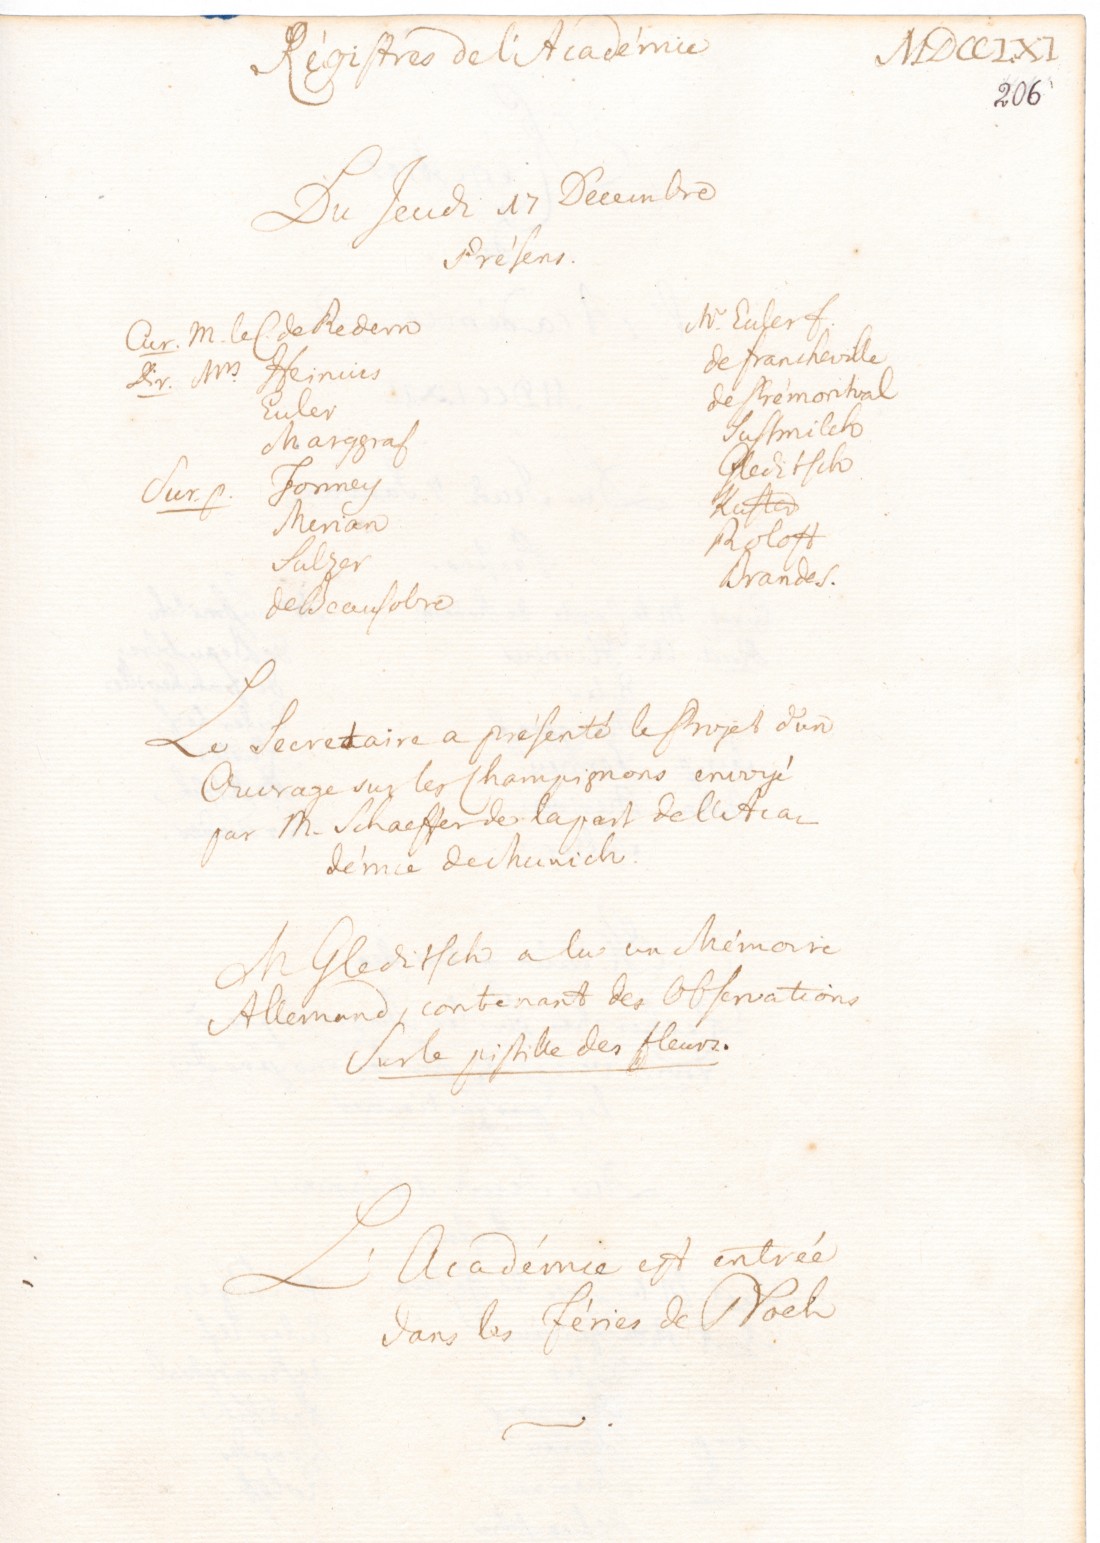 Régistres de l'Académie
MDCCLXI
206
Du Jeudi 17 Decembre
Présens.
Cur. M. le C. de Redern
Dir. Mrs Heinius
Euler
Marggraf
Formey
Merian
Sulzer
de Beausobre
Mr. Euler f.
de Francheville
de Prémontval
Susmilch
Gleditsch
Kuster
Roloff
Brandes.
Le Secretaire a présenté le Projet d'un
Ouvrage sur les Champignons envoyé
par M. Schaeffer de la part de l'Aca-
démie de Munich.
M Gleditsch a lu un Mémoire
Allemand, contenant des Observations
Sur le pistille des fleurs.
L'Académie est entrée
dans les féries de Noel